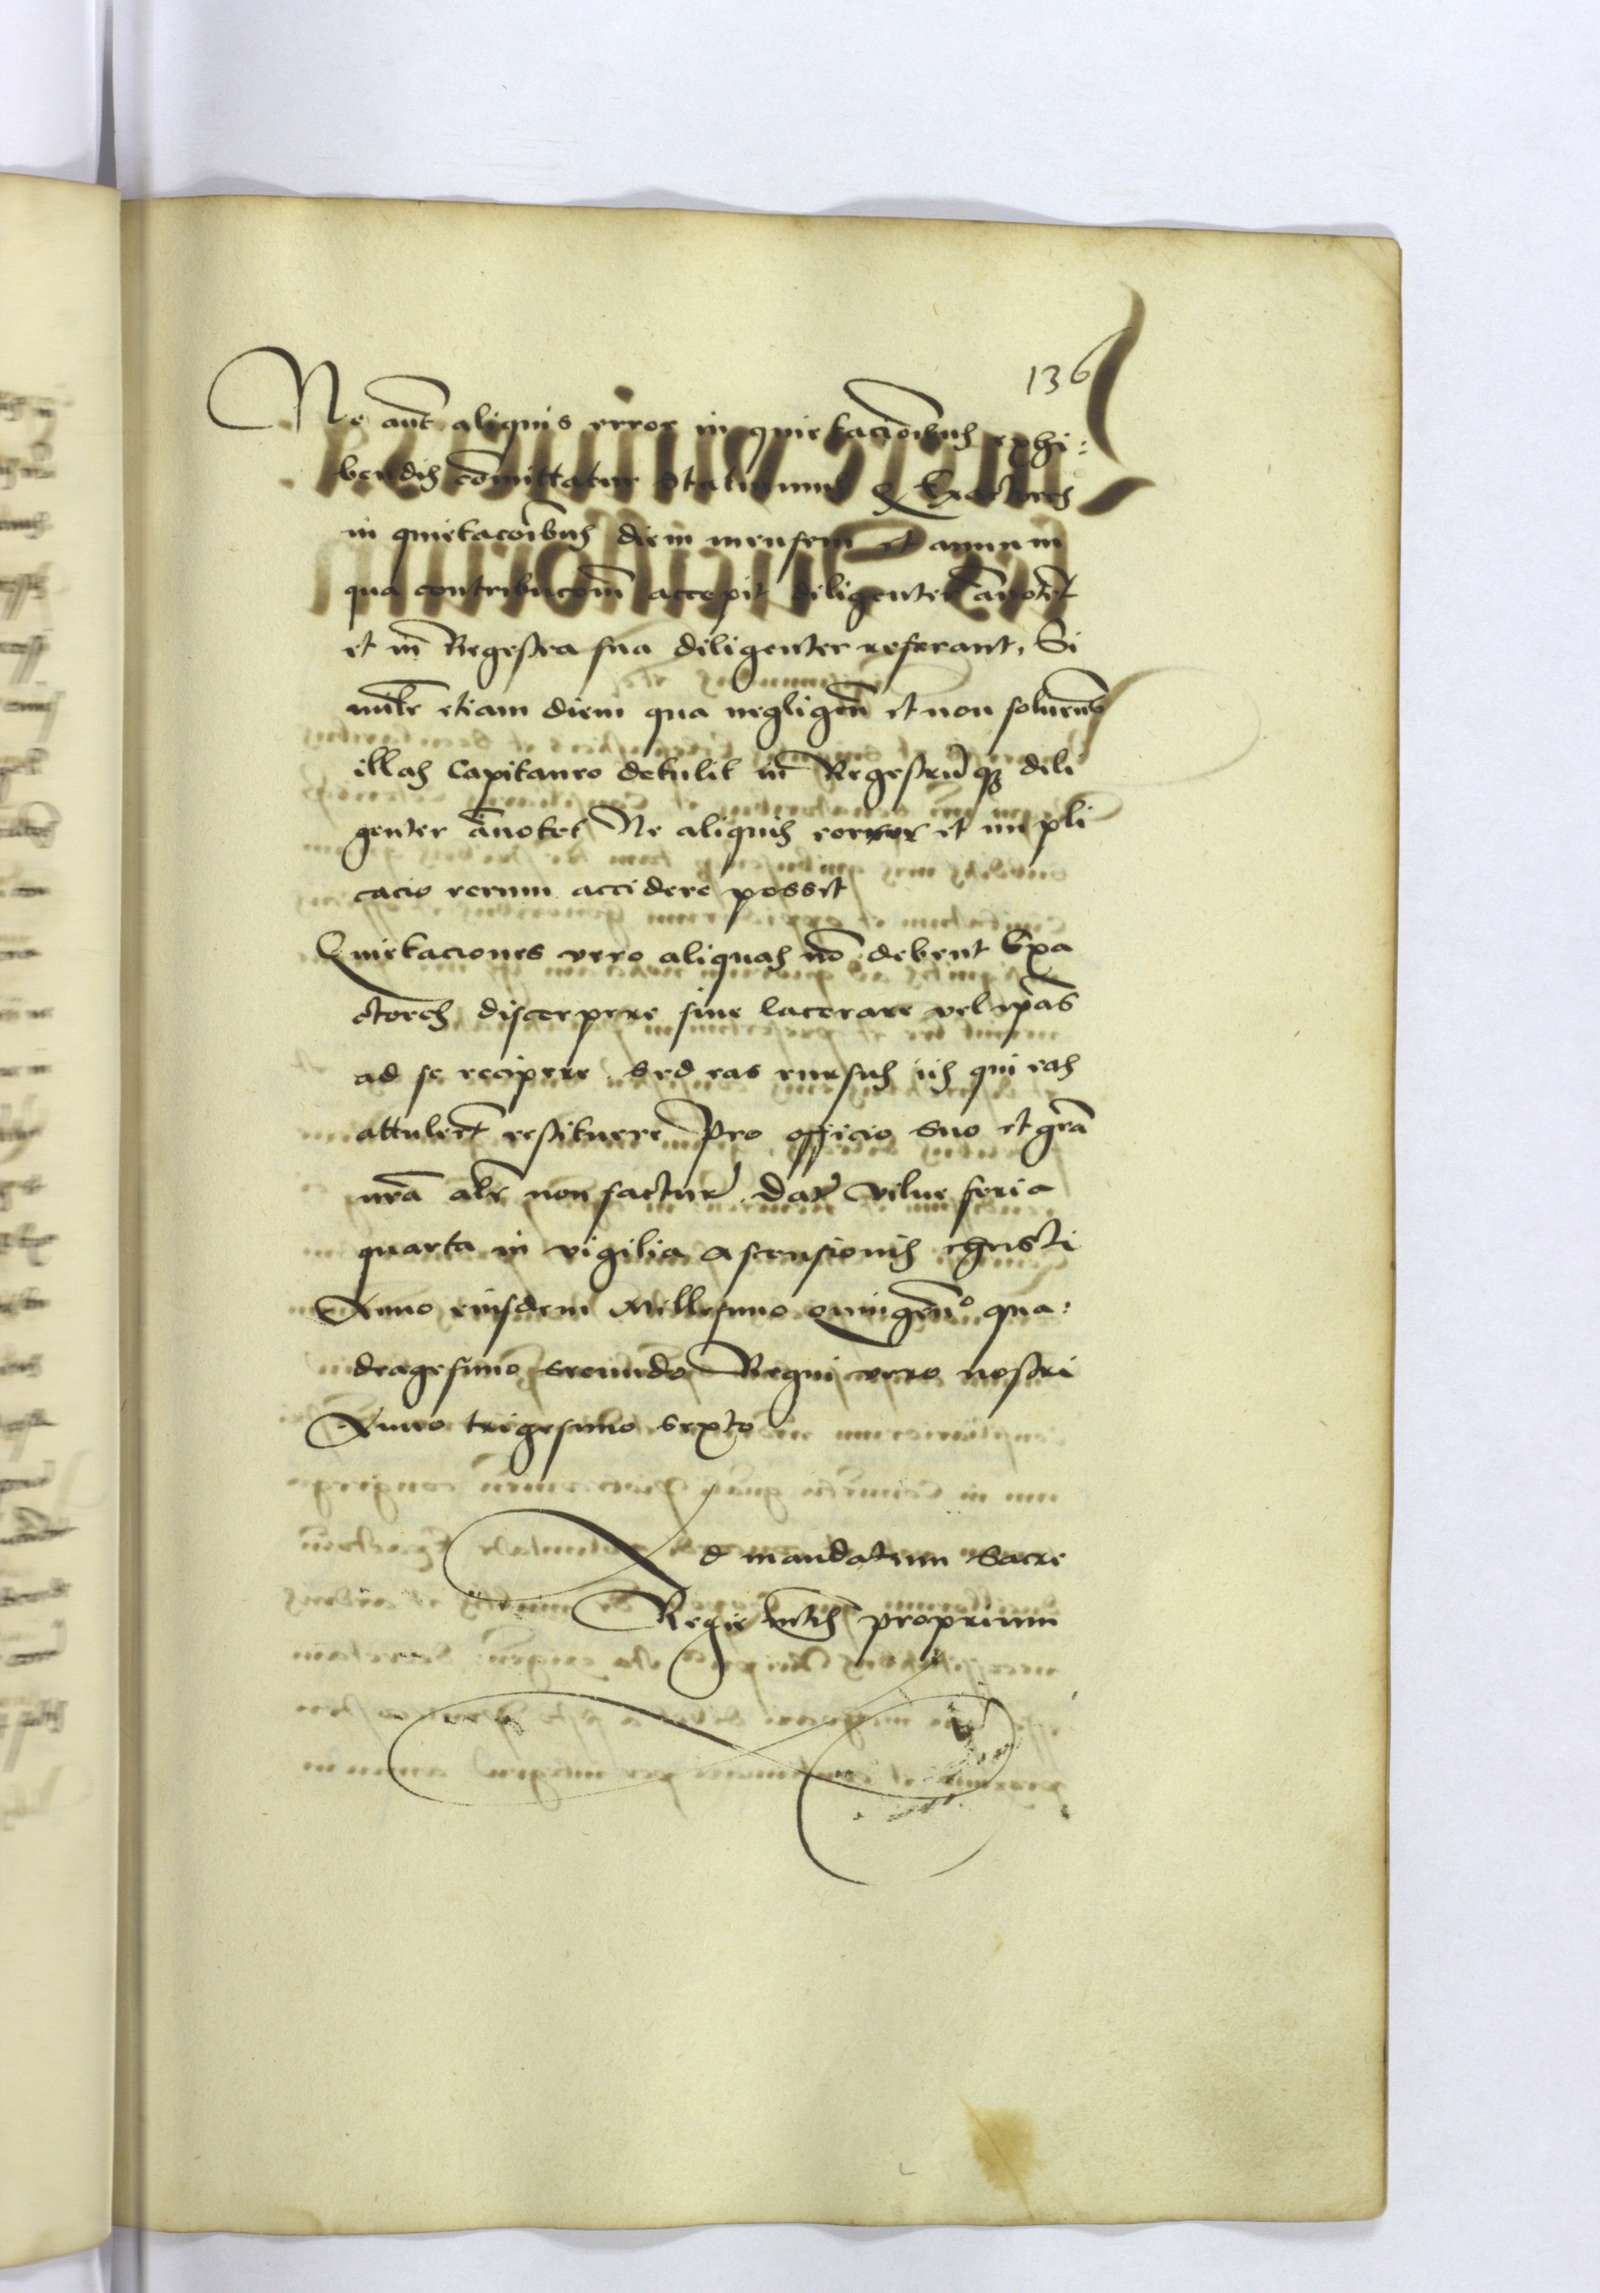 136
Ne aut aliquis error in quietacōibus exhi:
bendis cōmittatur Statuimus Exactores
in quietacōibus diem mensem et annum
qua contribucōm accepit diligenter ānotēt
et in Regestra sua diligenter referant, Si
mīlr etiam diem qua negligen et non soluen
illas Capitaneo detulit in Regestrūqz dili
genter ānotet Ne aliquis error et impli
cacio rerum accidere possit
Quietaciones vero aliquas nō debent Exa
ctores discerpere siue lacerare vel ipās
ad se recipere Sed eas rursus iis qui eas
attulert restituere Pro officio suo et grā
nrā alr non factur Dat Vilne feria
quarta in vigilia ascensionis christi
Anno eiusdem Millesimo quingenō qua:
dragesimo secundo Regni vero nostri
Anno trigesimo sexto
Ad mandatum Sacre
Regie Mtis proprium